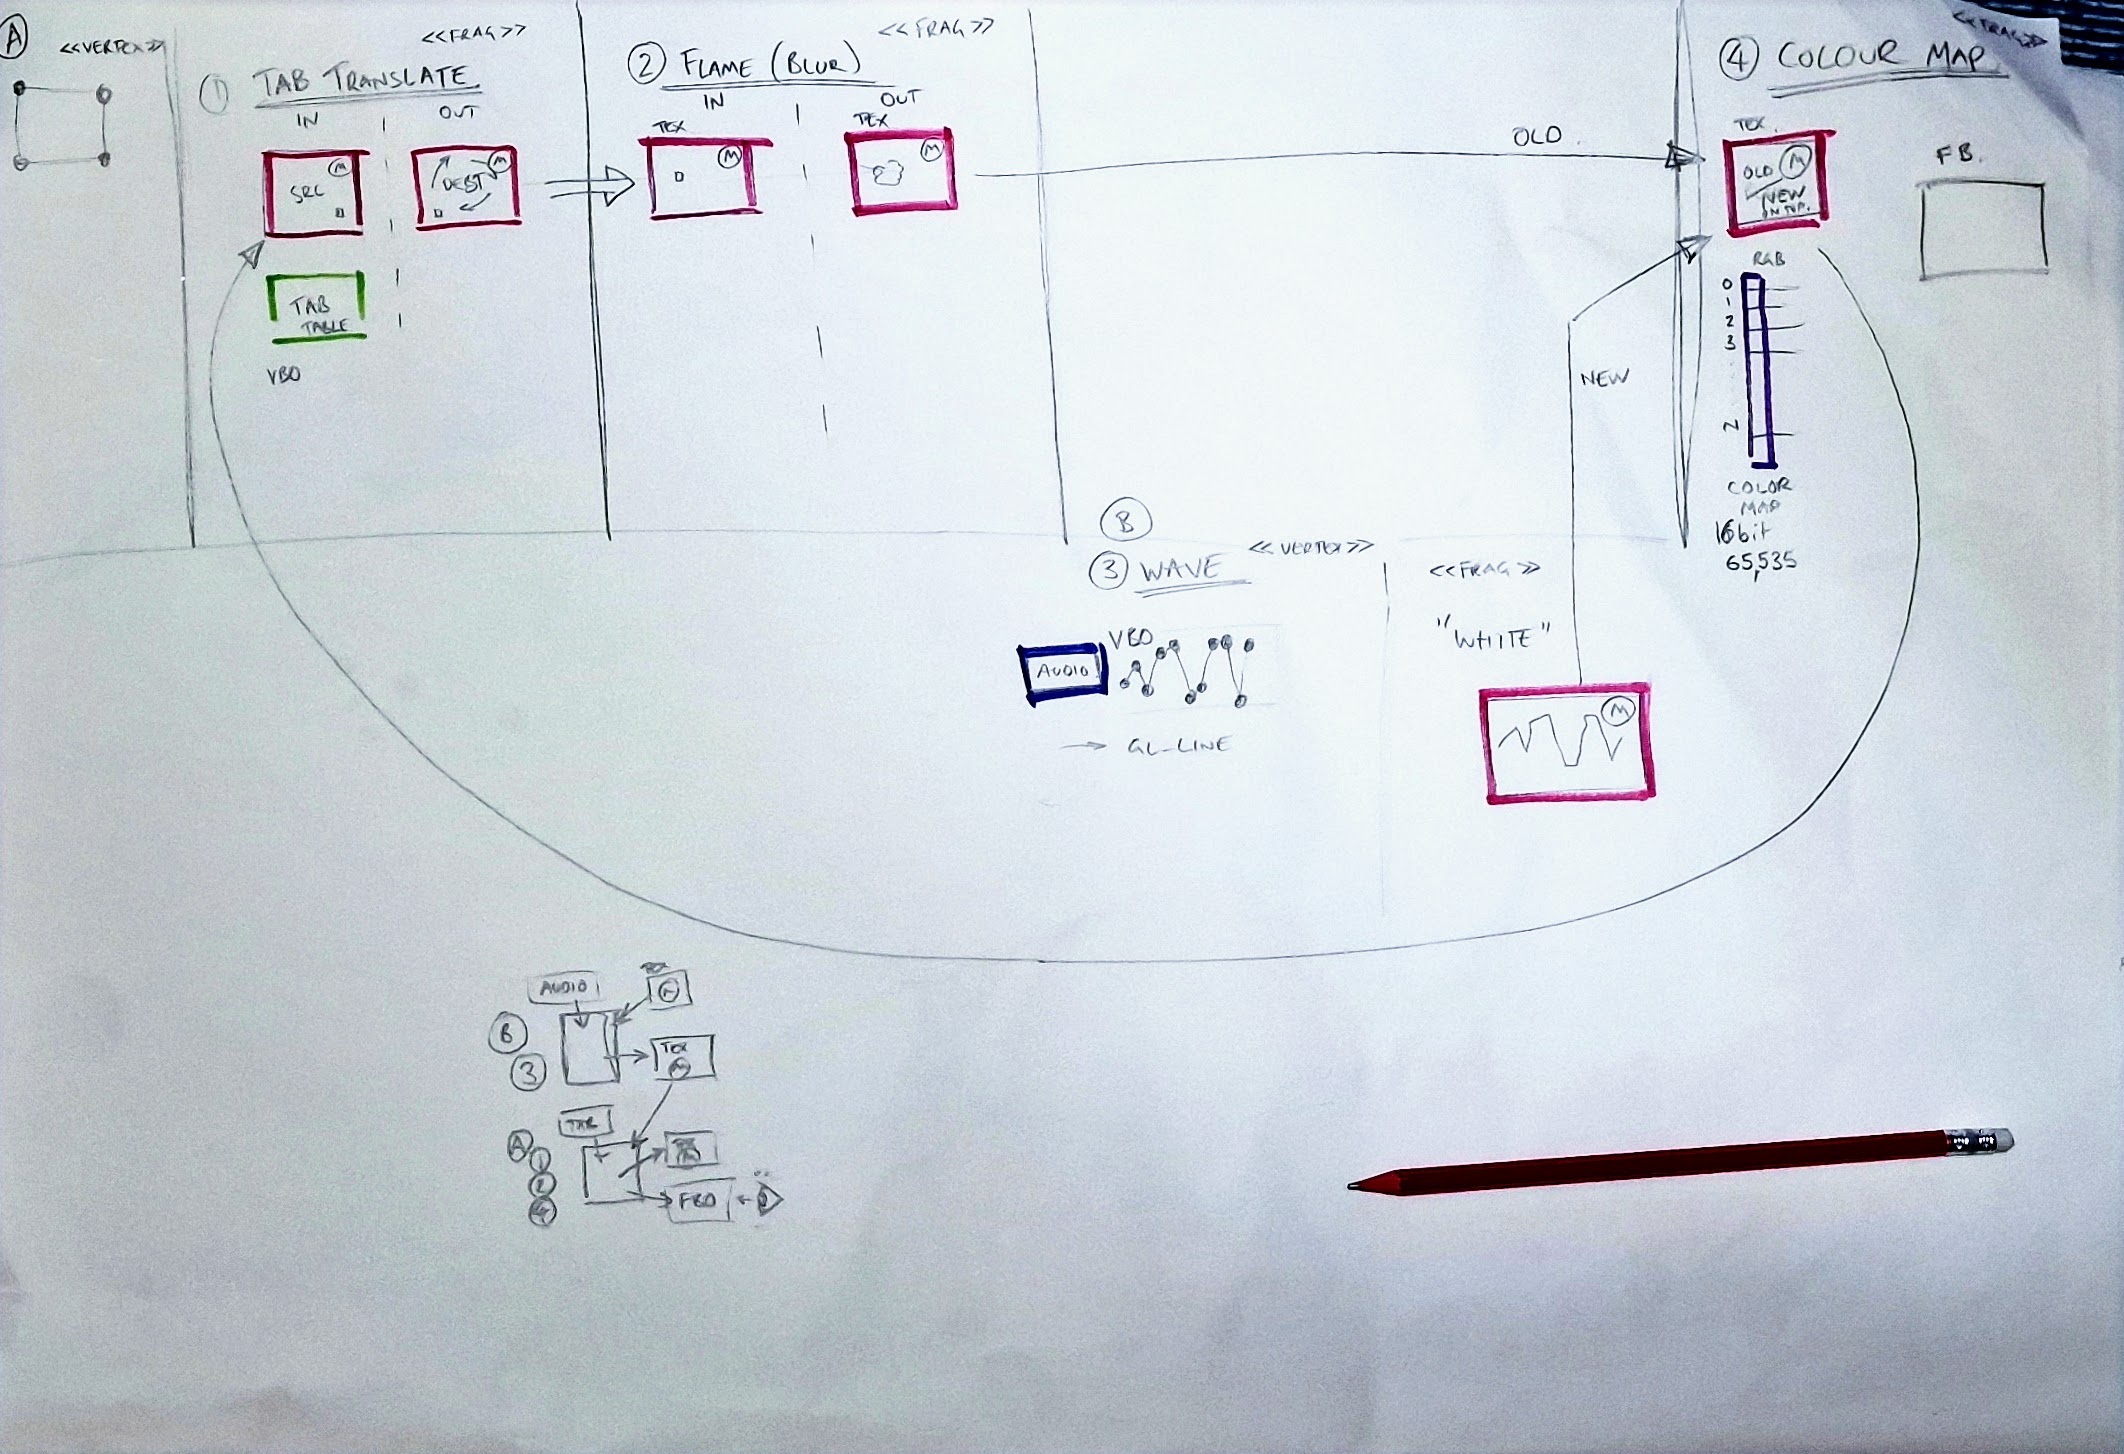 A
<<VERTEX>>
<<FRAG>>
1 TAB TRANSLATE
IN
OUT
M
SRC
M
DEST
TAB
TABLE
VBO
<<FRAG>>
2 FLAME (BLUR)
IN
OUT
TEX
M
TEX
M
OLD
<<FRAG>>
4 COLOUR MAP
TEX.
OLD M
NEW
ON TOP.
FB.
RGB
0
1
2
3
N
COLOR
MAP
16bit
65,535
NEW
B
3 WAVE
<<VERTEX>>
<<FRAG>>
AUDIO
VBO
"WHITE"
M
→ GL-LINE
AUDIO
TEX
M
B
3
TEX
M
TAB
A
1
2
4
FBO